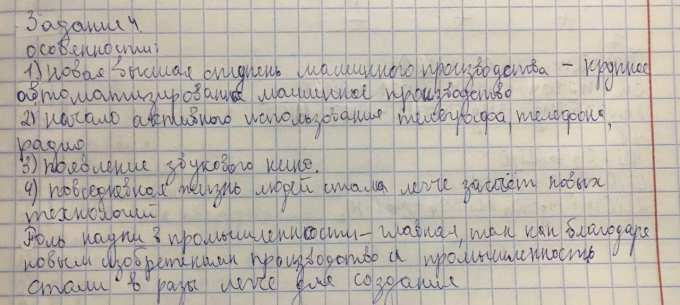 Задание 4.
особенности:
1) новая высшая ступень машинного производства – крупное
автоматизированное машинное производство
2) начало активного использования телеграфа, телефона,
радио
3) появление звукового кино.
4) повседневная жизнь людей стала легче засчёт новых
технологий
Роль науки в промышленности – главная, так как благодаря
новым изобретениям производство и промышленность
стали в разы легче для создания